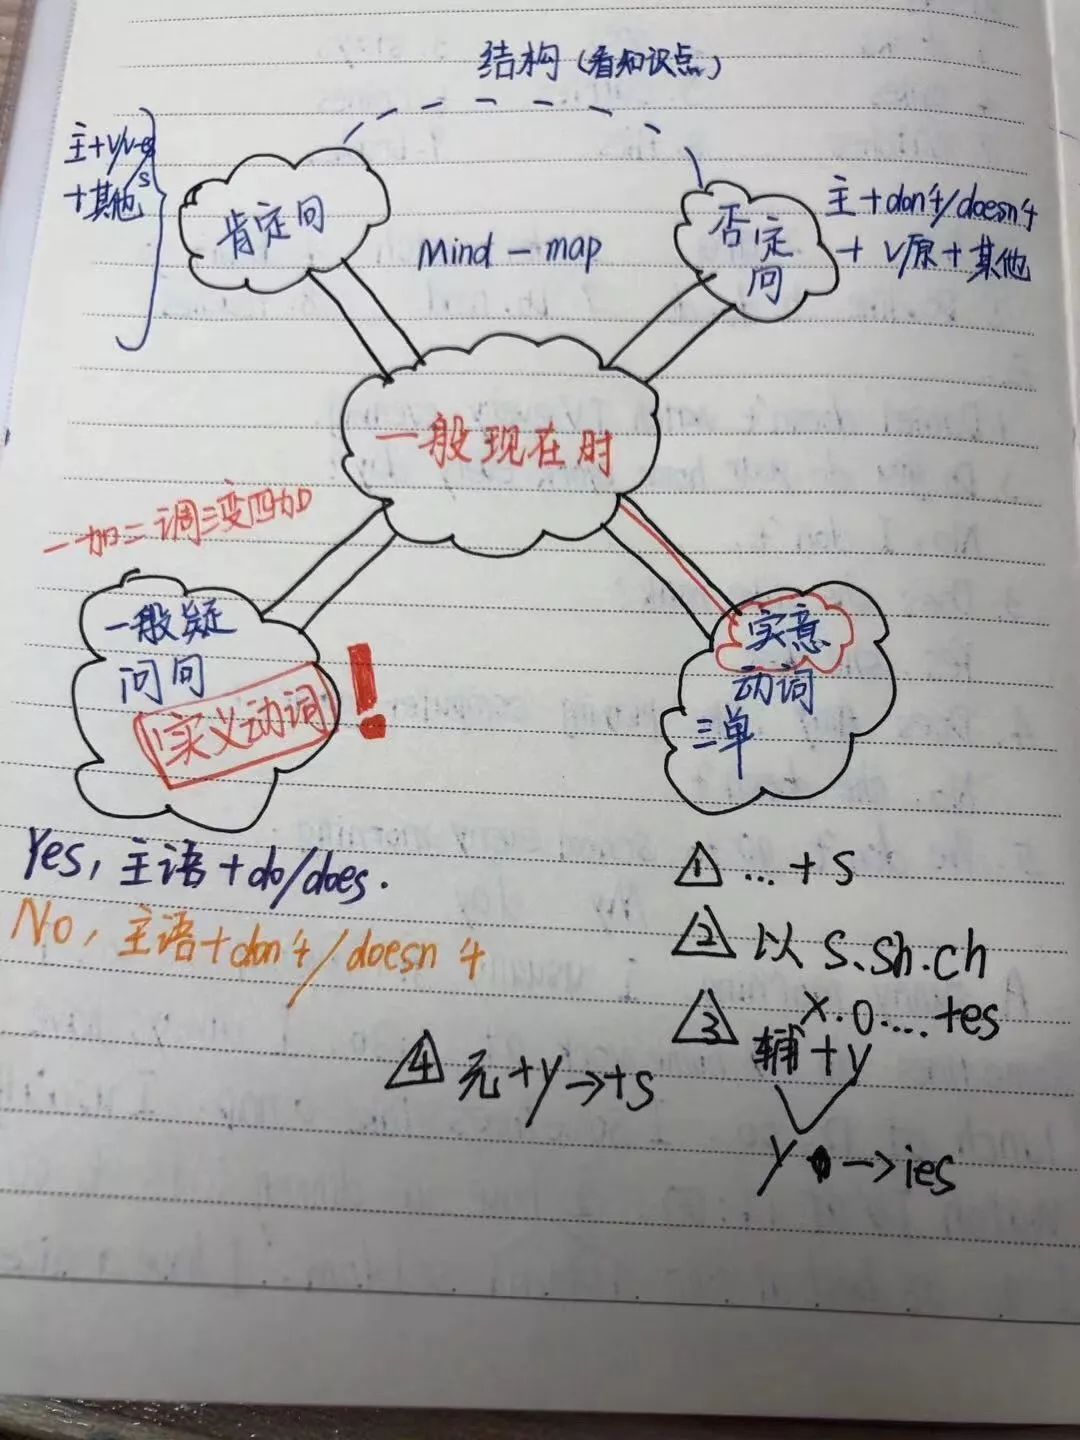 结构(看知识点)
主+v/v-es
+其他
肯定问
Mind-map
否定
问
主+don't/doesn't
+ v原+其他
一般现在时
一加二调三变四加
一般疑
问问
实义动词
!
实意
动词
三单
Yes, 主语+do/does.
No, 主语+don't/doesn't
① ...+s
② 以 s.sh.ch
x.o....+es
③ 辅+y
y→ies
④ 元+y→+s